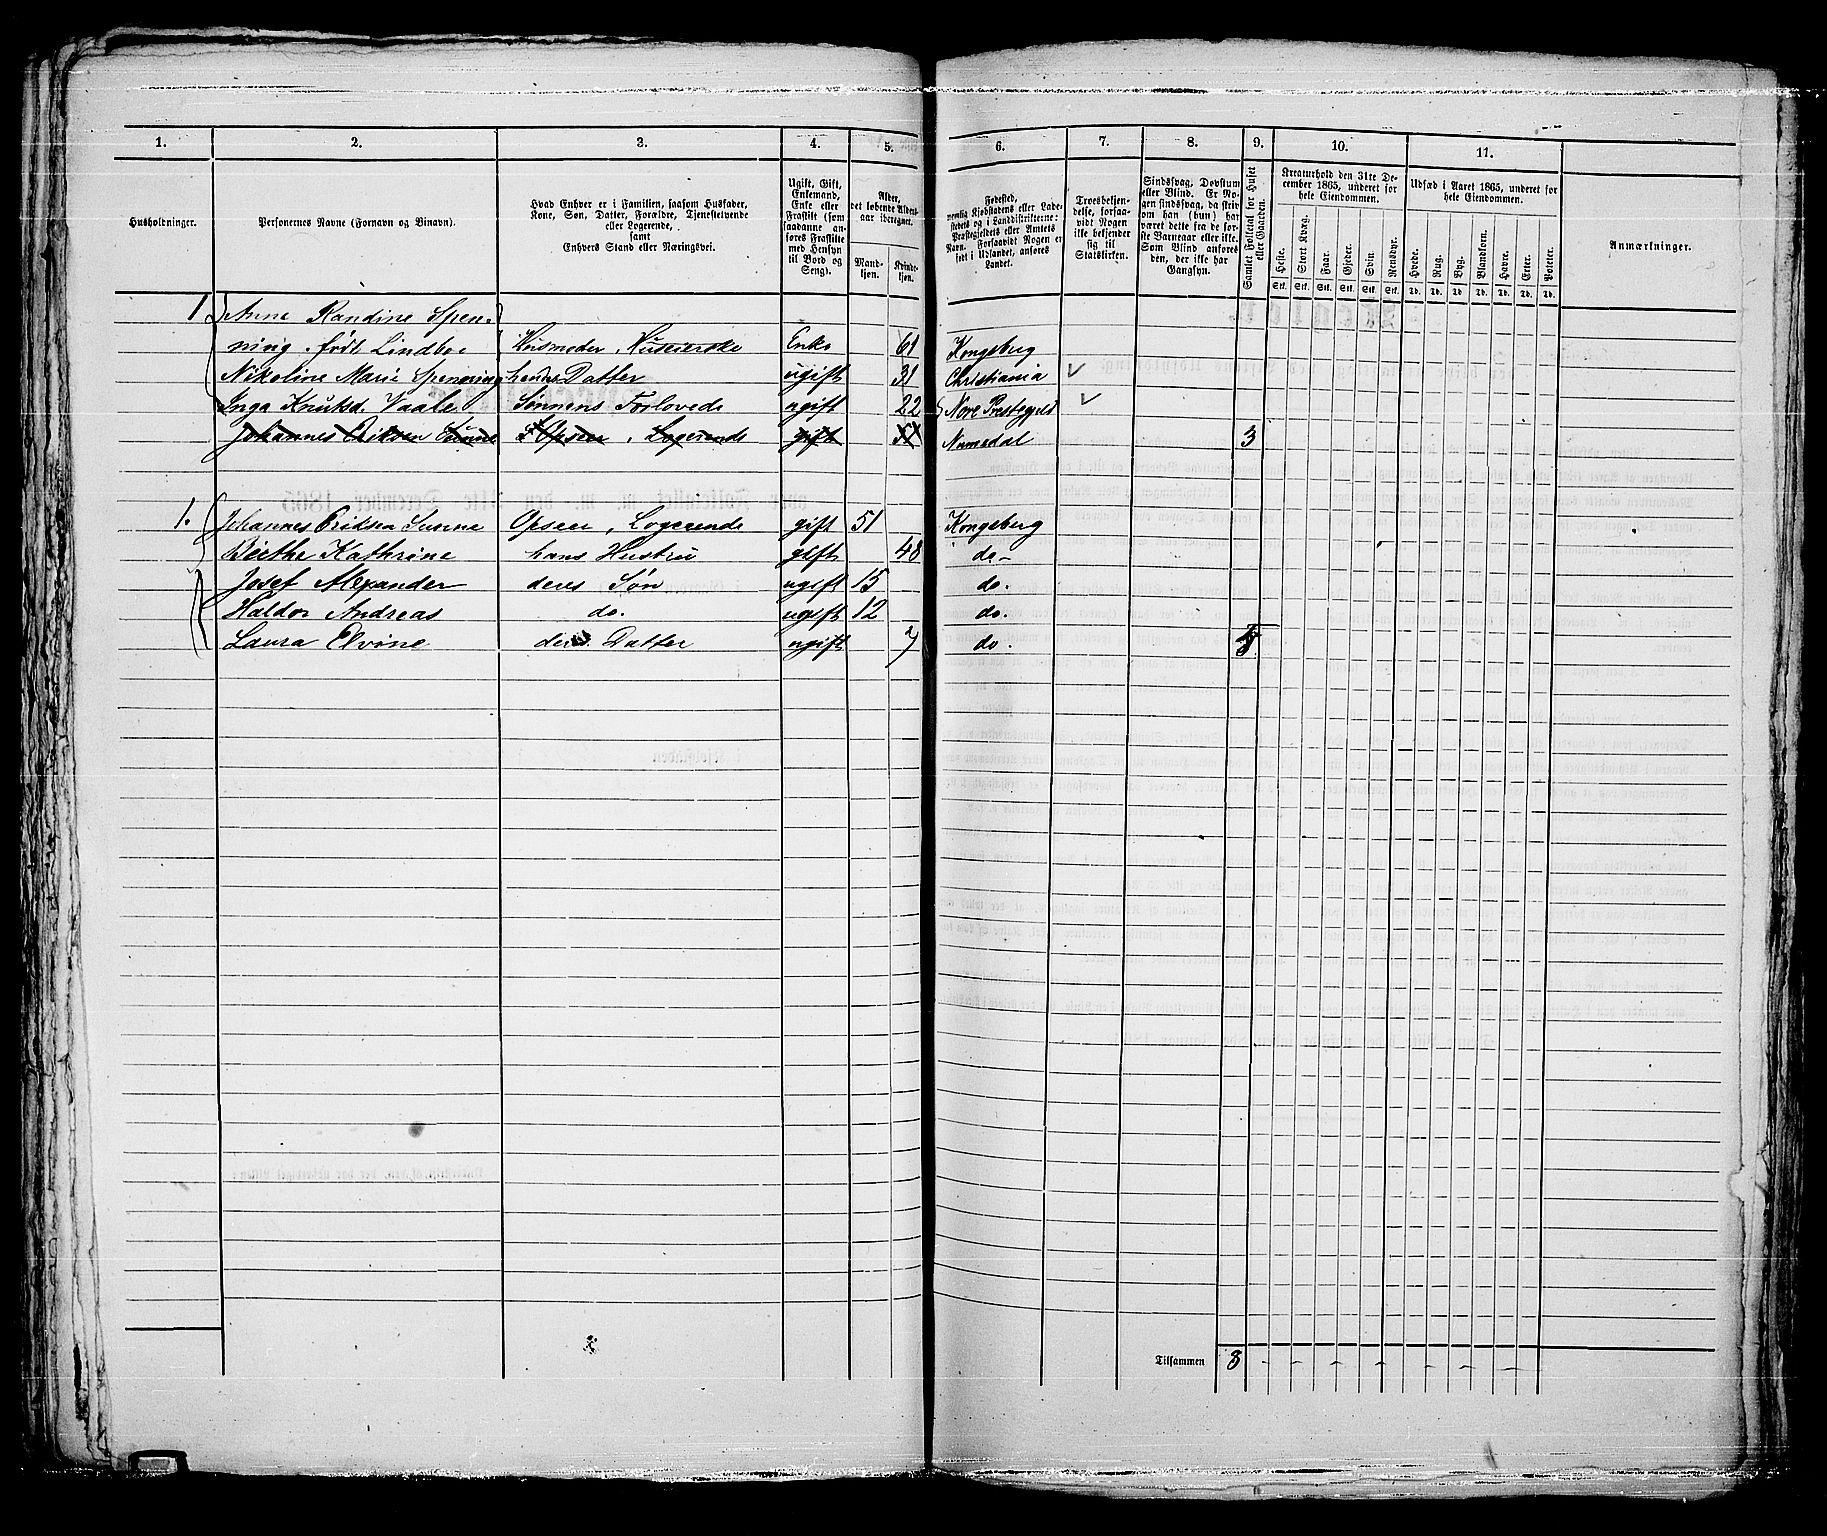 1. 2. 3. 4. 5. 6. 7. 8. 9. 10. 11.
Husholdninger.
Personernes Navne (Fornavn og Binavn).
Hvad Enhver er i Familien, saasom Husfader,
Kone, Søn, Datter, Forældre, Tjenestetyende
eller Logerende,
samt
Enhvers Stand eller Næringsvei.
Ugift, Gift,
Enkemand,
Enke eller
Fraskilt (som
saadanne an-
føres Fraskilte
med Hensyn
til Bord og
Seng).
Alder,
det løbende Alders-
aar iberegnet.
Mand-
kjøn.
Kvinde-
kjøn.
Fødested,
nemlig Kjøbstadens eller Lade-
stedets og i Landdistrikterne:
Præstegjeldets eller Amtets
Navn. Forsaavidt Nogen er
født i Udlandet, anføres
Landet.
Troesbekjen-
delse, forsaa-
vidt Nogen
ikke bekjender
sig til
Statskirken.
Sindssvag, Døvstum
eller Blind. Er No-
gen sindssvag, da skriv
om han (hun) har
været dette fra de før-
ste Barneaar eller ikke.
Som Blind anføres
den, der ikke har
Gangsyn.
Samlet Folketal for Huset
eller Gaarden.
Kreaturhold den 31te De-
cember 1865, underet for
hele Eiendommen.
Heste. Stort Kvæg. Faar. Gjeder. Sviin. Rensdyr.
Stk. Stk. Stk. Stk. Stk. Stk.
Udsæd i Aaret 1865, underet for
hele Eiendommen.
Hvede. Rug. Byg. Blandkorn. Havre. Erter. Poteter.
Td. Td. Td. Td. Td. Td. Td.
Anmærkninger.
1 Anne Randine Spen-
ning. født Lindboe Husmoder, Huseierske Enke 61 Kongsberg
Nikoline Marie Spenning hendes Datter ugift 31 Christiania
Inga Knutsd. Vaale Sønnens Forlovede ugift 22 Nore Prestegjeld
Johannes Eriksen Sunne Opseer, Logerende gift Numedal 3
1. Johannes Eriksen Sunne Opseer, Logerende gift 51 Kongsberg
Birthe Kathrine hans Hustru gift 48 do-
Josef Alexander deres Søn ugift 15 do.
Haldor Andreas do. ugift 12 do.
Laura Elvine deres Datter ugift 7 do. 5
Tilsammen 8